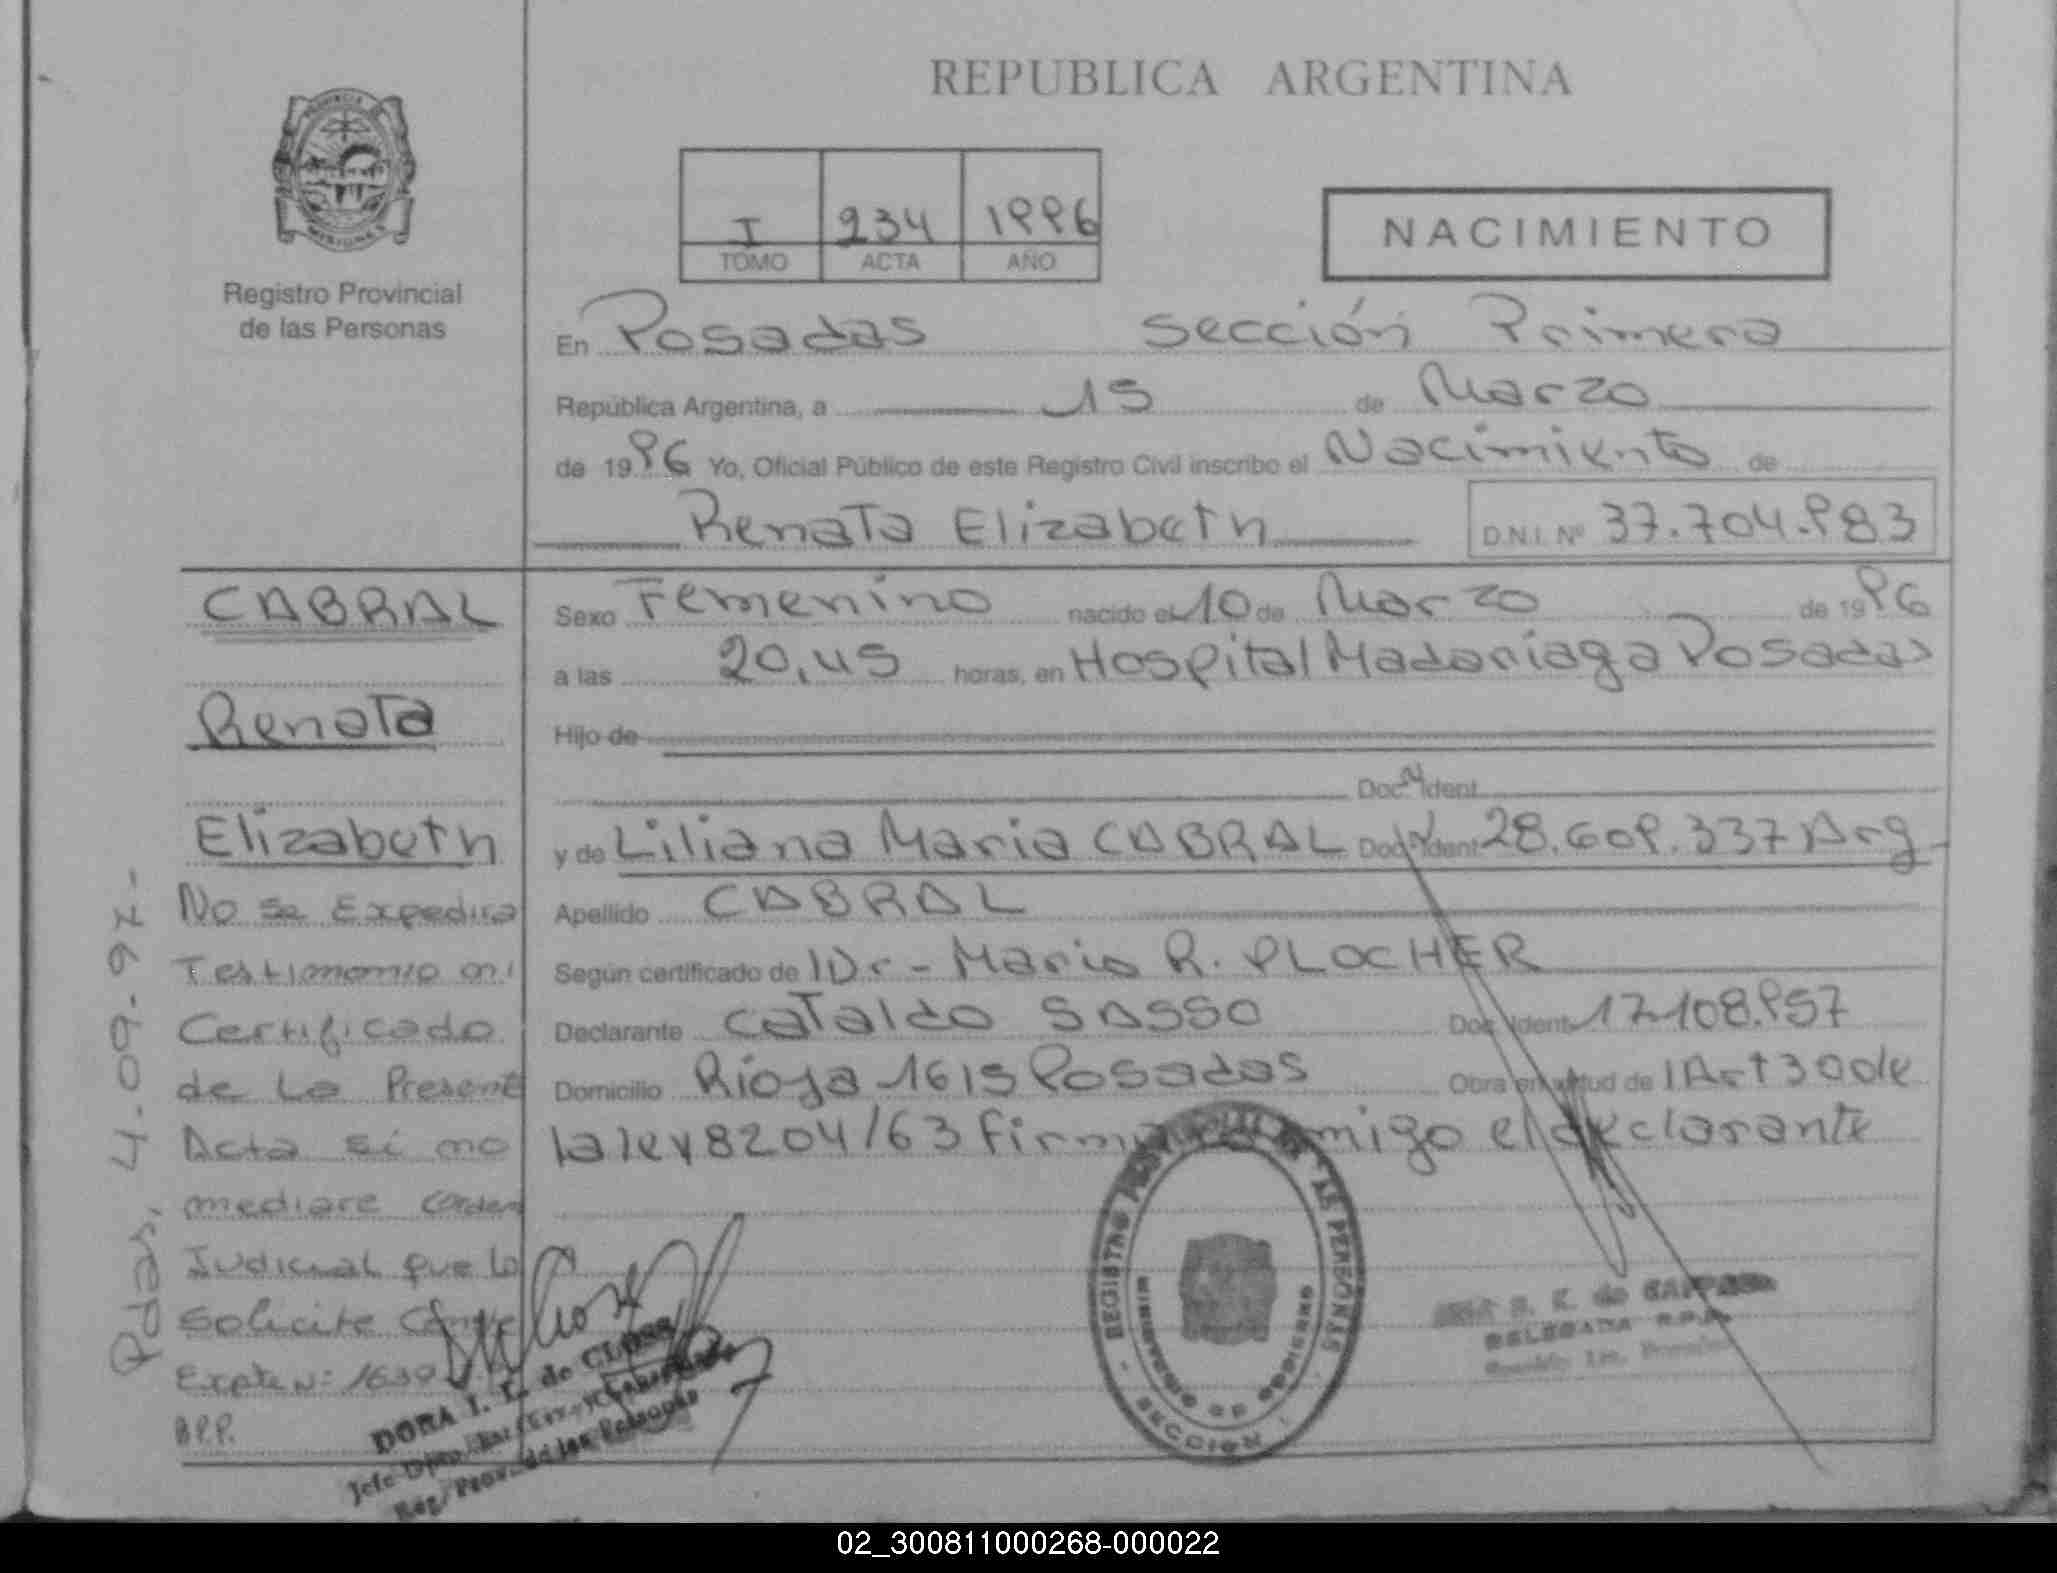 REPUBLICA ARGENTINA
PROVINCIA DE
MISIONES
Registro Provincial
de las Personas
I 234 1996
TOMO ACTA AÑO
NACIMIENTO
En Posadas Sección Primera
República Argentina, a 15 de Marzo
de 1996 Yo, Oficial Público de este Registro Civil inscribo el Nacimiento de
Renata Elizabeth D.N.I. Nº 37.704.983
CABRAL
Renata
Elizabeth
Sexo Femenino nacido el 10 de Marzo de 1996
a las 20,45 horas, en Hospital Madariaga Posadas
Hijo de
Doc. Ident.
y de Liliana Maria CABRAL Doc. Ident. 28.609.337 Arg
Apellido CABRAL
Según certificado de Dr - Mario R. PLOCHER
Declarante Cataldo SASSO Doc. Ident. 17.108.957
Domicilio Rioja 1615 Posadas Obra en virtud de Art 30 de
la ley 8204/63 firma conmigo el declarante
No se Expedira
Testimonio ni
Certificado
de La Presente
Acta si no
mediare Orden
Judicial que lo
Solicite
Expte Nº 1630
Pdas, 4-09-97-
DORA I. de
Reg. Prov. de las Personas
REGISTRO PROVINCIAL DE LAS PERSONAS
SECCION
DELEGADA R.P.P.
02_300811000268-000022